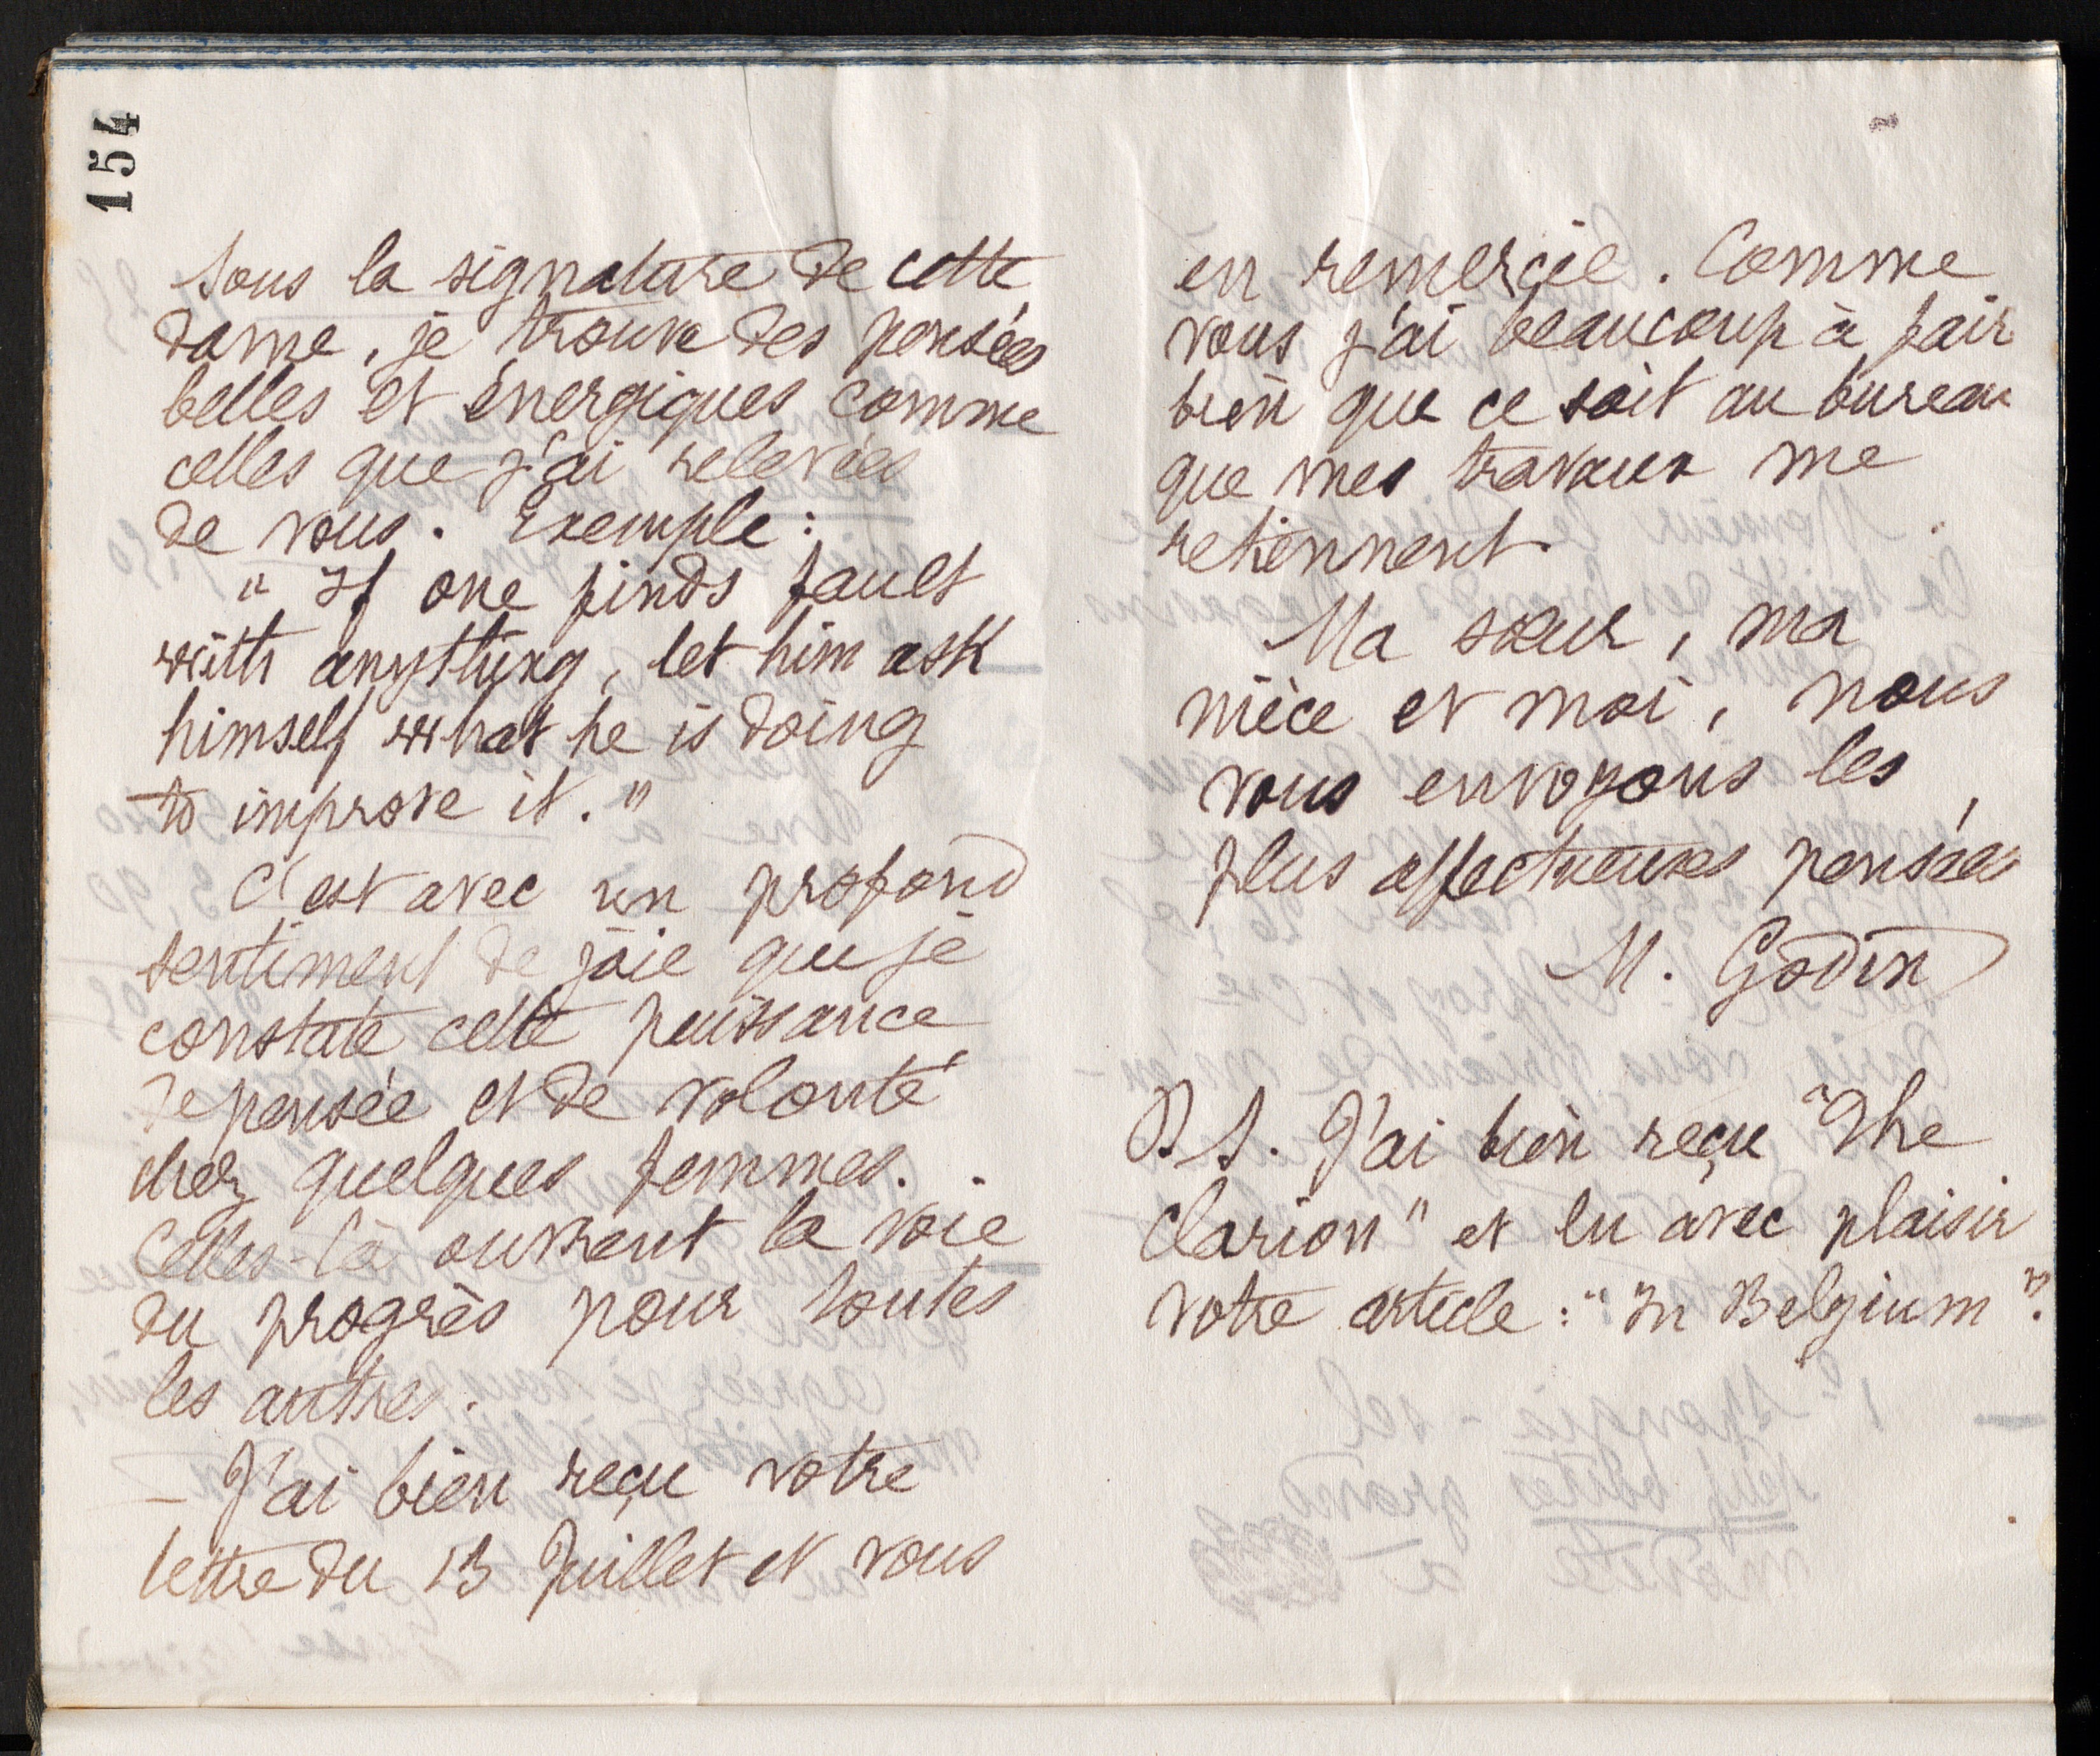 154
Sous la signature de cette
dame, je trouve des pensées
belles et énergiques comme
celles que j'ai relevées
de vous. Exemple :
" If one finds fault
with anything, let him ask
himself what he is doing
to improve it. "
C'est avec un profond
sentiment de joie que je
constate cette puissance
de pensée et de volonté
chez quelques femmes.
Celles-là ouvrent la voie
du progrès pour toutes
les autres.
– J'ai bien reçu votre
lettre du 13 Juillet et vous
en remercie. Comme
vous j'ai beaucoup à fair
bien que ce soit au bureau
que mes travaux me
retiennent.
Ma sœur, ma
nièce et moi, nous
vous envoyons les
plus affectueuses pensées
M. Godin
P.S. J'ai bien reçu "The
Clarion" et lu avec plaisir
votre article : "In Belgium".